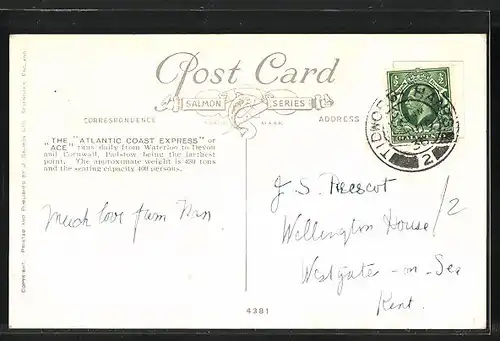 Post Card
SALMON SERIES
TRADE MARK
CORRESPONDENCE
ADDRESS
"THE "ATLANTIC COAST EXPRESS" or
"ACE" runs daily from Waterloo to Devon
and Cornwall, Padstow being the farthest
point. The approximate weight is 480 tons
and the seating capacity 400 persons.
Much love from
J. S. Prescot
Wellington House /2
Westgate - on - Sea
Kent.
4381
TIDWORTH
2